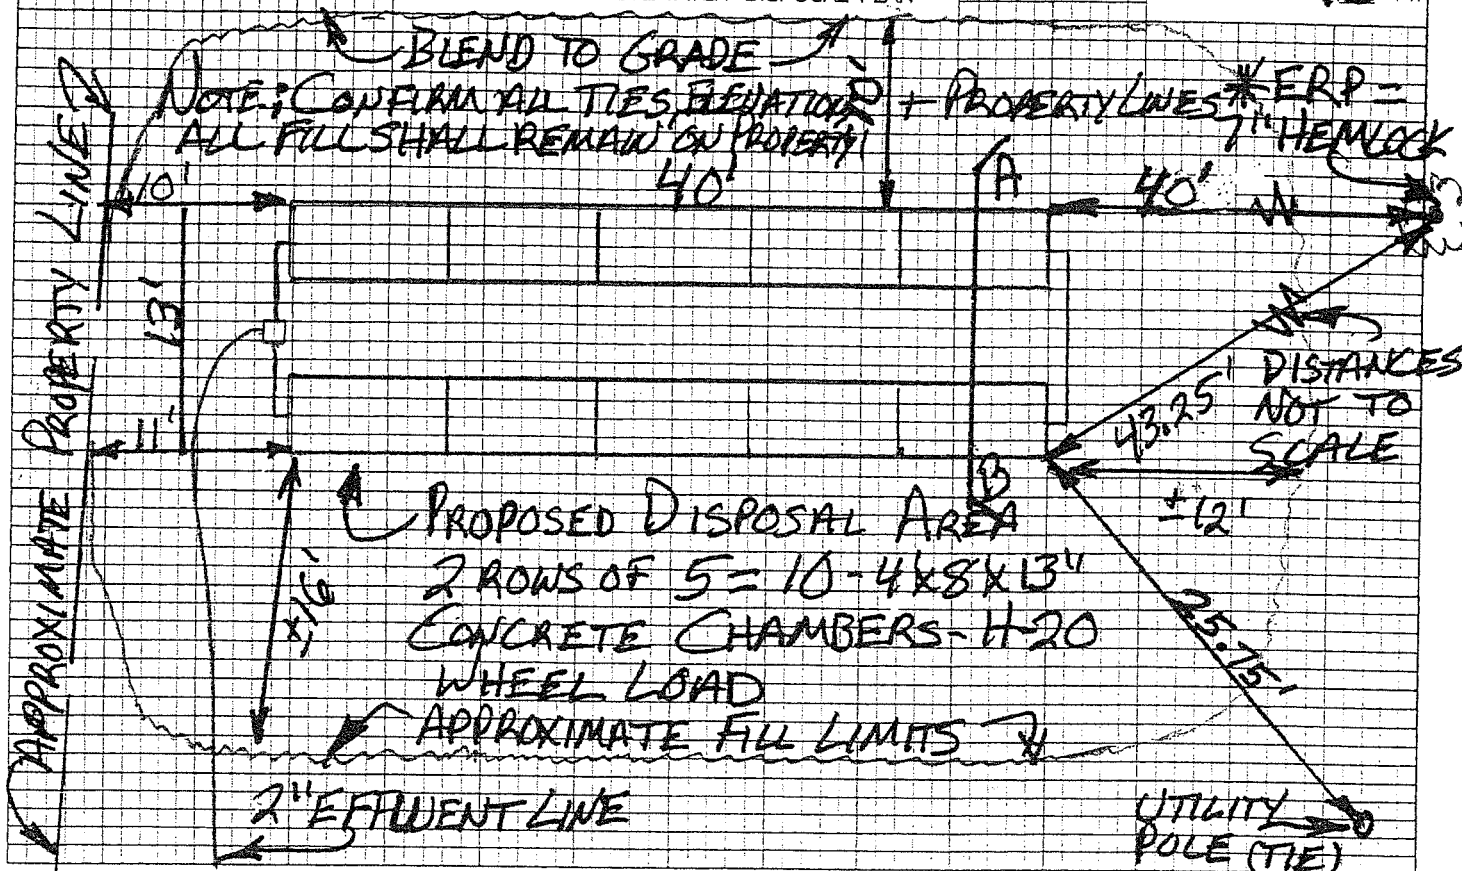 BLEND TO GRADE
NOTE: CONFIRM ALL TIES, ELEVATIONS + PROPERTY LINES
ALL FILL SHALL REMAIN ON PROPERTY!
*ERP =
7" HEMLOCK
APPROXIMATE PROPERTY LINE
10'
40'
A
40'
13'
11'
43.25'
DISTANCES
NOT TO
SCALE
B
±12'
PROPOSED DISPOSAL AREA
2 ROWS OF 5 = 10 - 4'X8'X13"
CONCRETE CHAMBERS - H-20
WHEEL LOAD
25.75'
APPROXIMATE FILL LIMITS
2" EFFLUENT LINE
UTILITY
POLE (TIE)